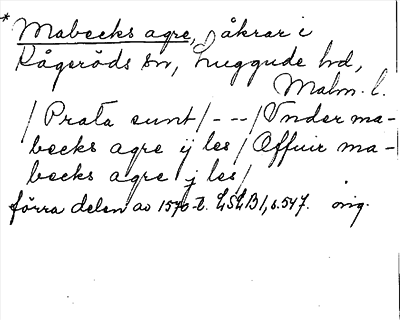 * Mabecks agre, åkrar i
Kågeröds sn, Luggude hd,
Malm. l.
/Prata sunt/---/Vnder ma-
becks agre ij les/Offuir ma-
becks agre j les/
förra delen av 1570-t. LSLB 1, s. 547. orig.